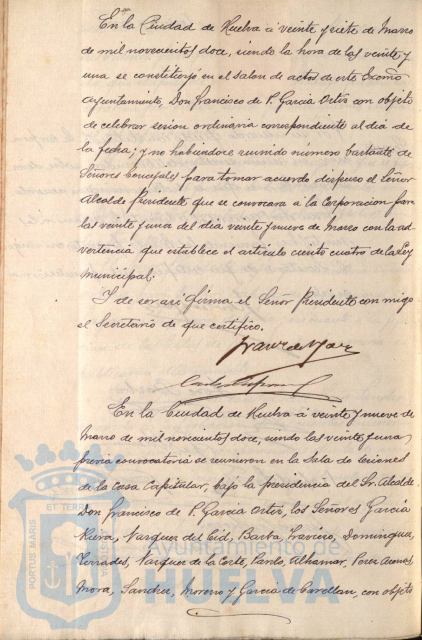 En la Ciudad de Huelva á veinte y siete de Marzo
de mil novecientos doce, siendo la hora de las veinte y
una se constituyó en el salon de actos de este Excmo
Ayuntamiento, Don Francisco de P. Garcia Ortiz con objeto
de celebrar sesion ordinaria correspondiente al dia de
la fecha; y no habiendose reunido número bastante de
Señores Concejales para tomar acuerdo dispuso el Señor
Alcalde Presidente que se convocara a la Corporacion para
las veinte y una del dia veinte y nueve de Marzo con la ad-
vertencia que establece el articulo ciento cuatro de la Ley
municipal.
Y de ser asi firma el Señor Presidente con migo
el Secretario de que certifico.
En la Ciudad de Huelva á veinte y nueve de
Marzo de mil novecientos doce, siendo las veinte y una,
previa convocatoria se reunieron en la Sala de sesiones
de la Casa Capitular, bajo la presidencia del Sr. Alcalde
Don Francisco de P. Garcia Ortiz, los Señores Garcia
Vazquez del Cid, Barba, Travieso, Dominguez,
Terrades, Vazquez de la Corte, Pardo, Alhamar, Perez
Mora, Sanchez, Moreno y Garcia de con objeto
PORTUS MARIS
ET TERRÆ
Ayuntamiento de
HUELVA